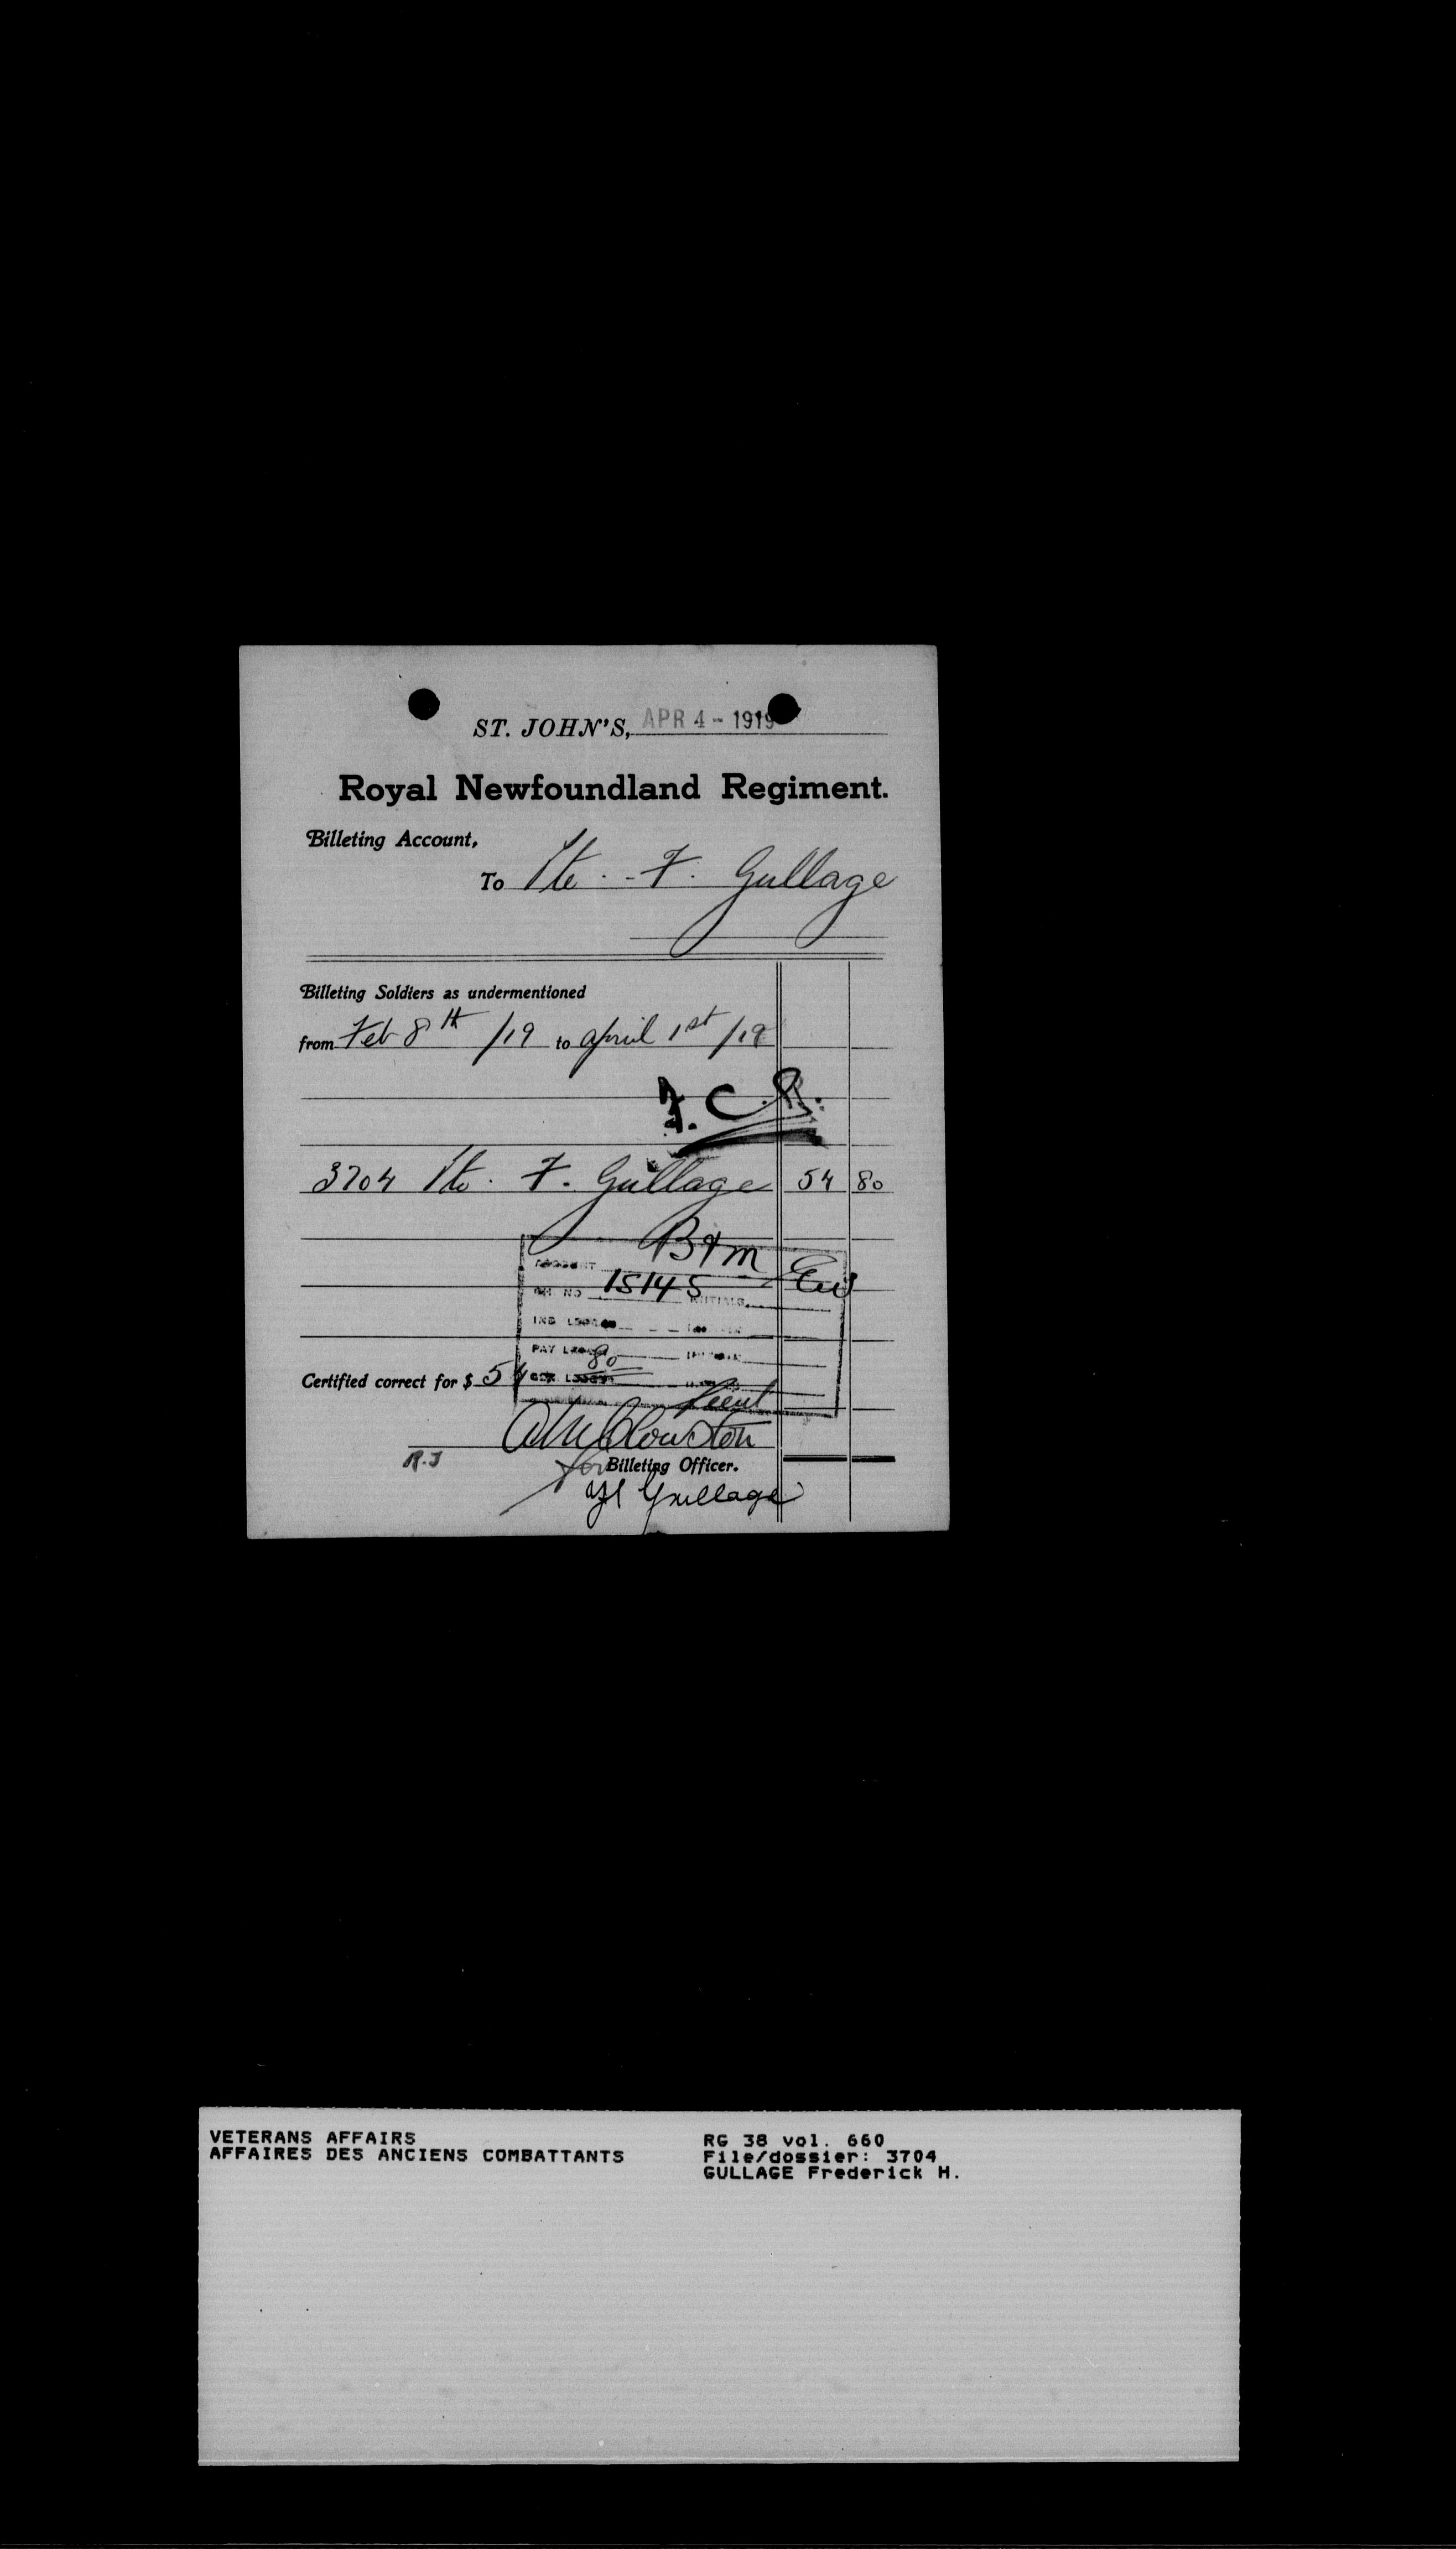 ST. JOHN'S, APR 4 - 1919
Royal Newfoundland Regiment.
Billeting Account,
To Pte. - F. Gullage
Billeting Soldiers as undermentioned
from Feb 8th /19 to April 1st /19
F. C. R.
3704 Pte. F. Gullage 54 80
B & M
ACCOUNT
CH. NO. 15145 INITIALS
IND LEDGER
PAY LEDGER INITIALS
80
Certified correct for $ 54 GEN LEDGER INITIALS
Lieut
R.J
for Billeting Officer.
Gullage
VETERANS AFFAIRS
AFFAIRES DES ANCIENS COMBATTANTS
RG 38 vol. 660
File/dossier: 3704
GULLAGE Frederick H.